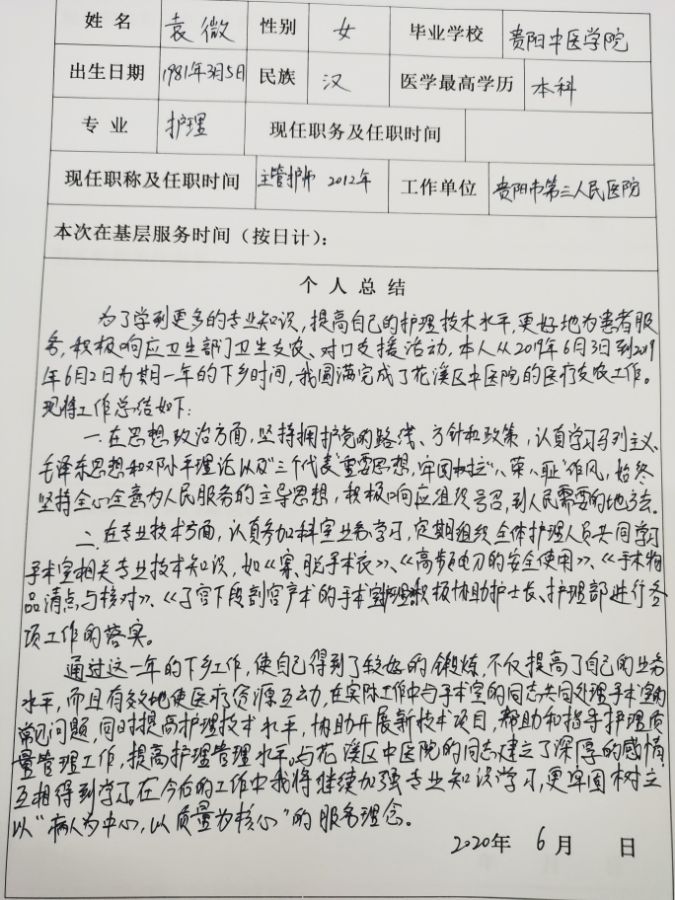 姓名 袁微 性别 女 毕业学校 贵阳中医学院
出生日期 1981年3月5日 民族 汉 医学最高学历 本科
专业 护理 现任职务及任职时间
现任职称及任职时间 主管护师 2012年 工作单位 贵阳市第三人民医院
本次在基层服务时间（按日计）：
个人总结
为了学到更多的专业知识，提高自己的护理技术水平，更好地为患者服
务，积极响应卫生部门卫生支农、对口支援活动，本人从2019年6月3日到2019
年6月2日为期一年的下乡时间，我圆满完成了花溪区中医院的医疗支农工作。
现将工作总结如下：
一、在思想政治方面，坚持拥护党的路线、方针和政策，认真学习马列主义、
毛泽东思想和邓小平理论以及“三个代表”重要思想，牢固树立“八荣八耻”作风，始终
坚持全心全意为人民服务的主导思想，积极响应组织号召，到人民需要的地方去。
二、在专业技术方面，认真参加科室业务学习，定期组织全体护理人员共同学习
手术室相关专业技术知识，如《穿、脱手术衣》、《高频电刀的安全使用》、《手术物
品清点与核对》、《子宫下段剖宫产术的手术室护理》积极协助护士长、护理部进行各
项工作的落实。
通过这一年的下乡工作，使自己得到了较好的锻炼，不仅提高了自己的业务
水平，而且有效地使医疗资源互动，在实际工作中与手术室的同志共同处理手术室的
常见问题，同时提高护理技术水平，协助开展新技术项目，帮助和指导护理质
量管理工作，提高护理管理水平。与花溪区中医院的同志建立了深厚的感情，
互相得到学习。在今后的工作中我将继续加强专业知识学习，更牢固树立
以“病人为中心，以质量为核心”的服务理念。
2020年 6月 日